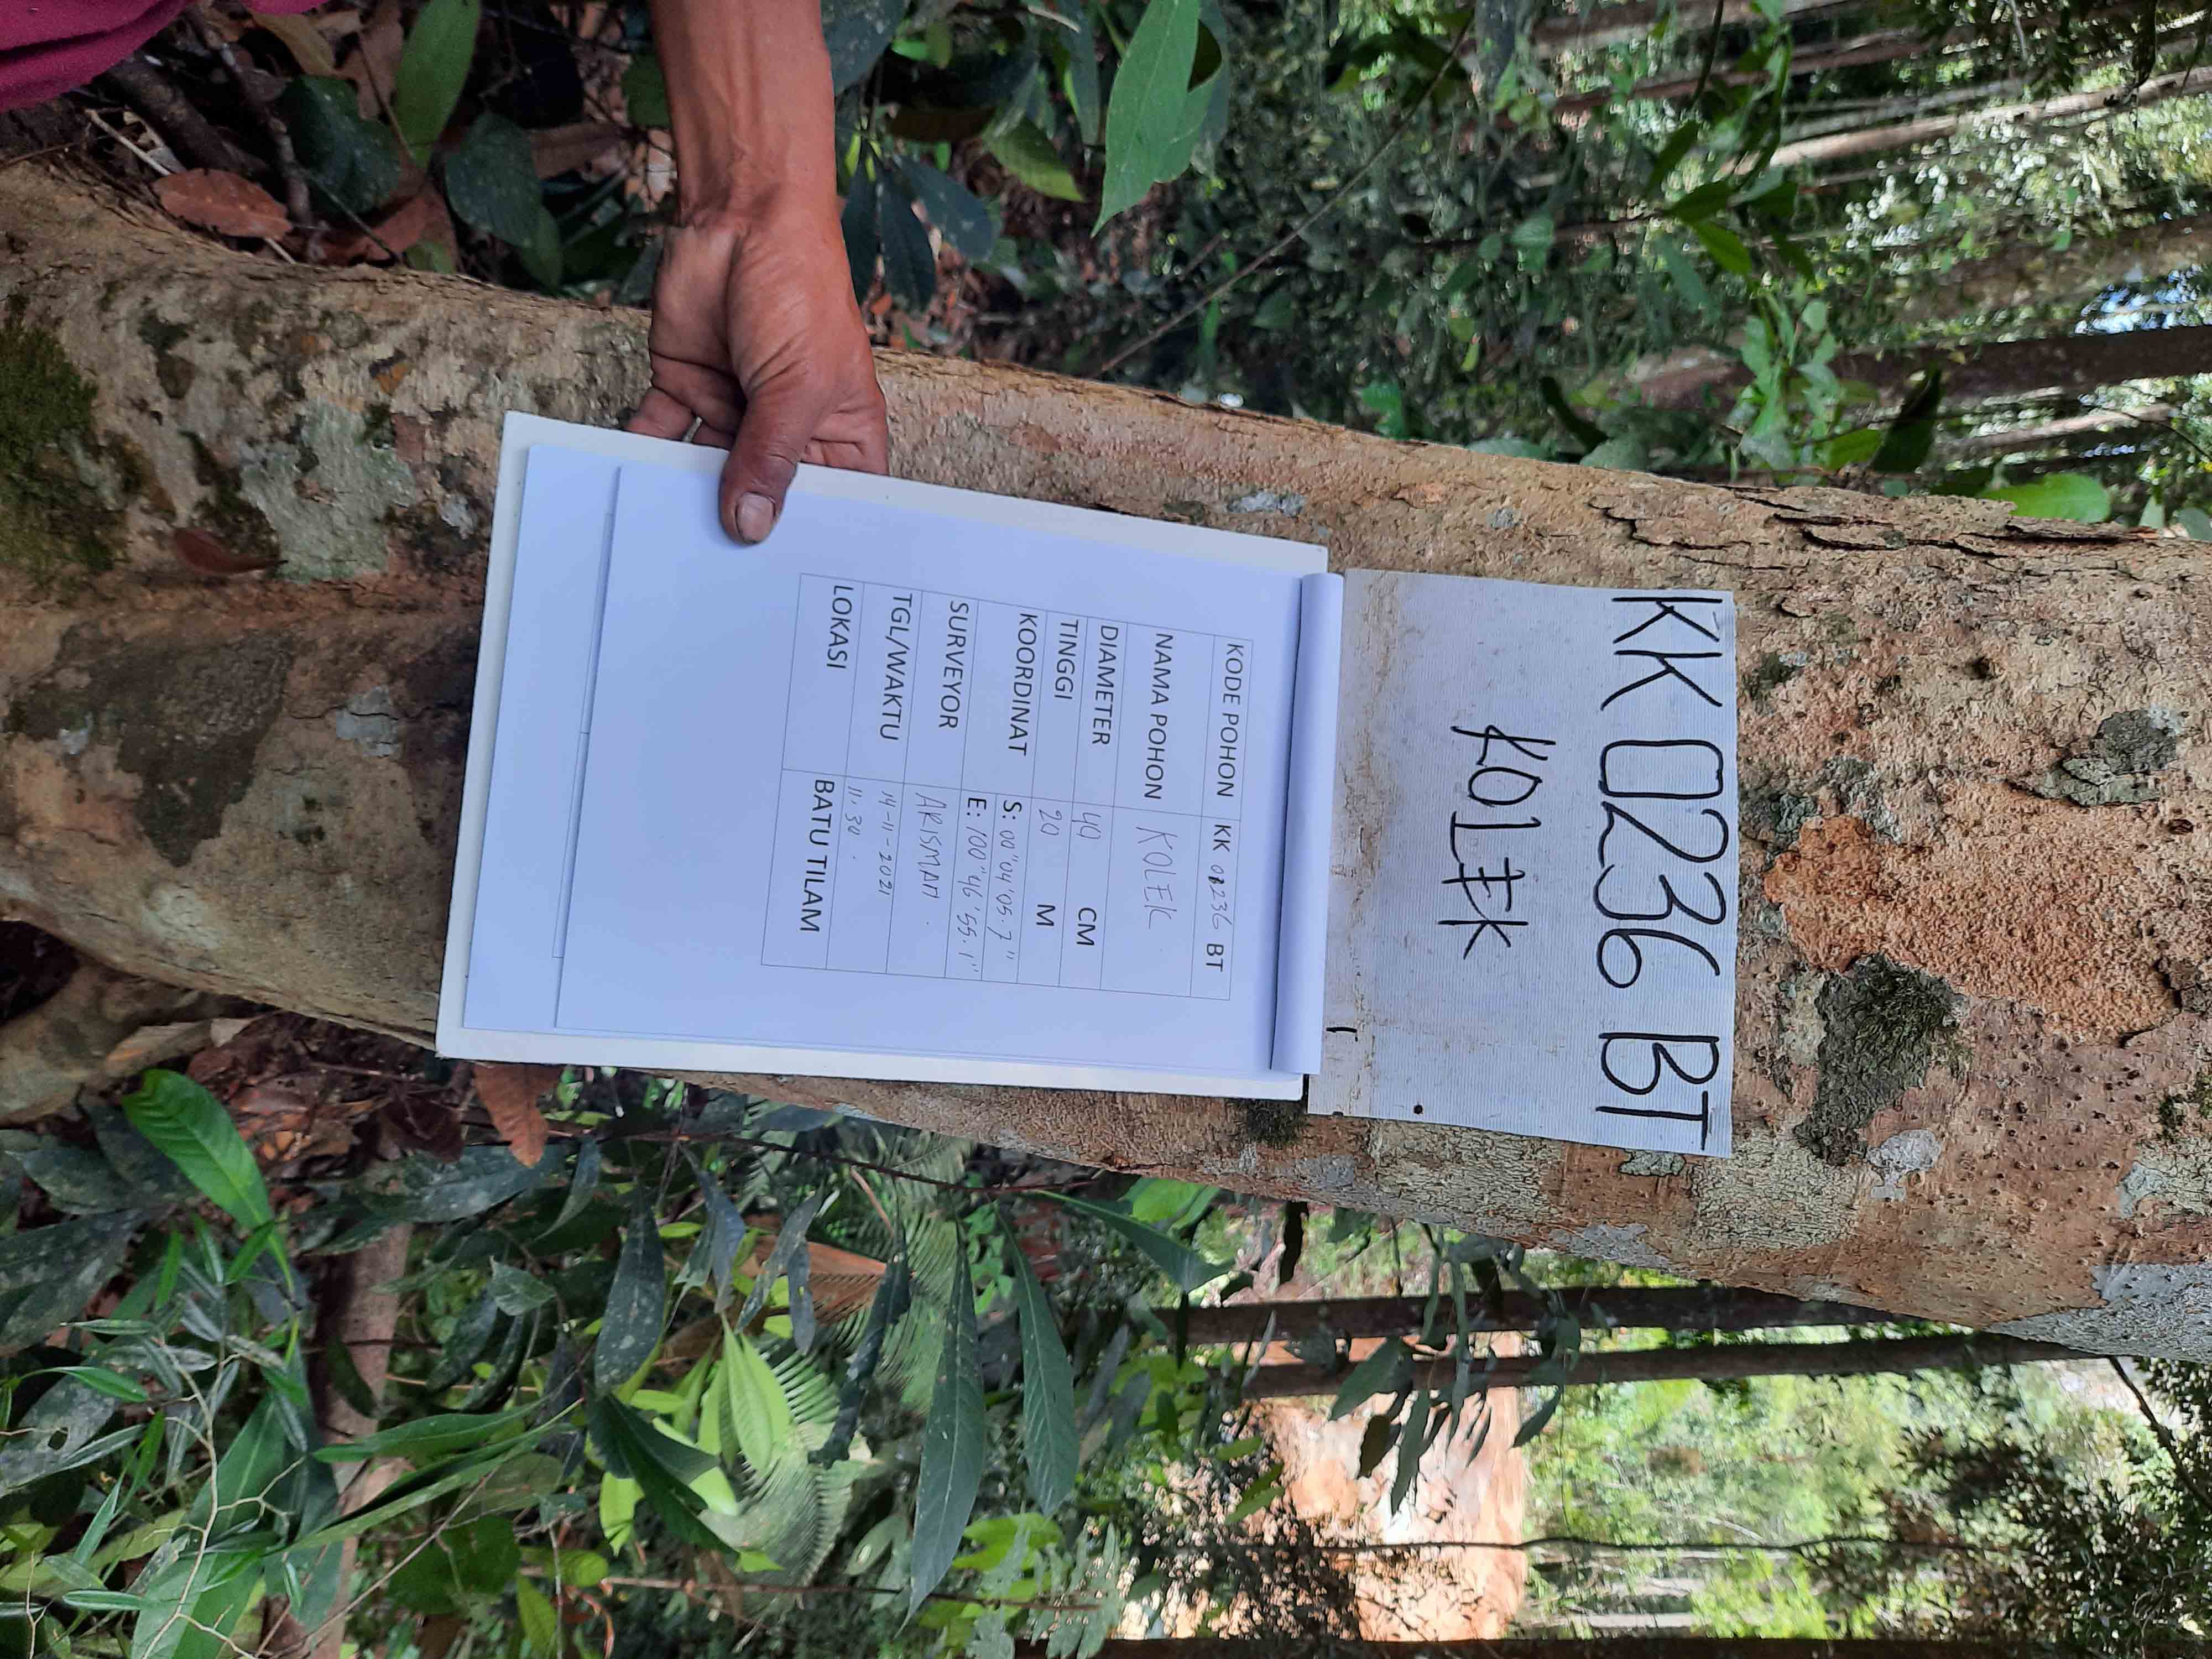 KK 0236 BT
KOLEK
KODE POHON KK 0236 BT
NAMA POHON KOLEK
DIAMETER 40 CM
TINGGI 20 M
KOORDINAT S: 00"04'05.7"
E: 100"46'55.1"
SURVEYOR ARISMAN.
TGL/WAKTU 14-11-2021
11.30.
LOKASI BATU TILAM